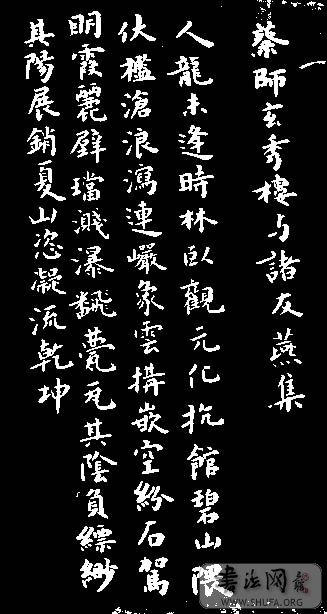 蔡師玄秀樓与諸友燕集
人龍未逢時林臥觀元化抗館碧山隈
伏檻滄浪瀉連巖象雲搆嵌空紛石駕
明霞麗璧璫濺瀑翻甍瓦其陰負縹緲
其陽展銷夏山恣凝流乾坤
書法网
WWW.SHUFA.ORG